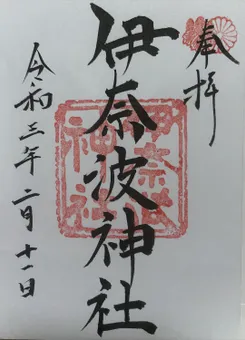 奉拝
伊奈波神社
令和三年二月十一日
伊奈波
神社